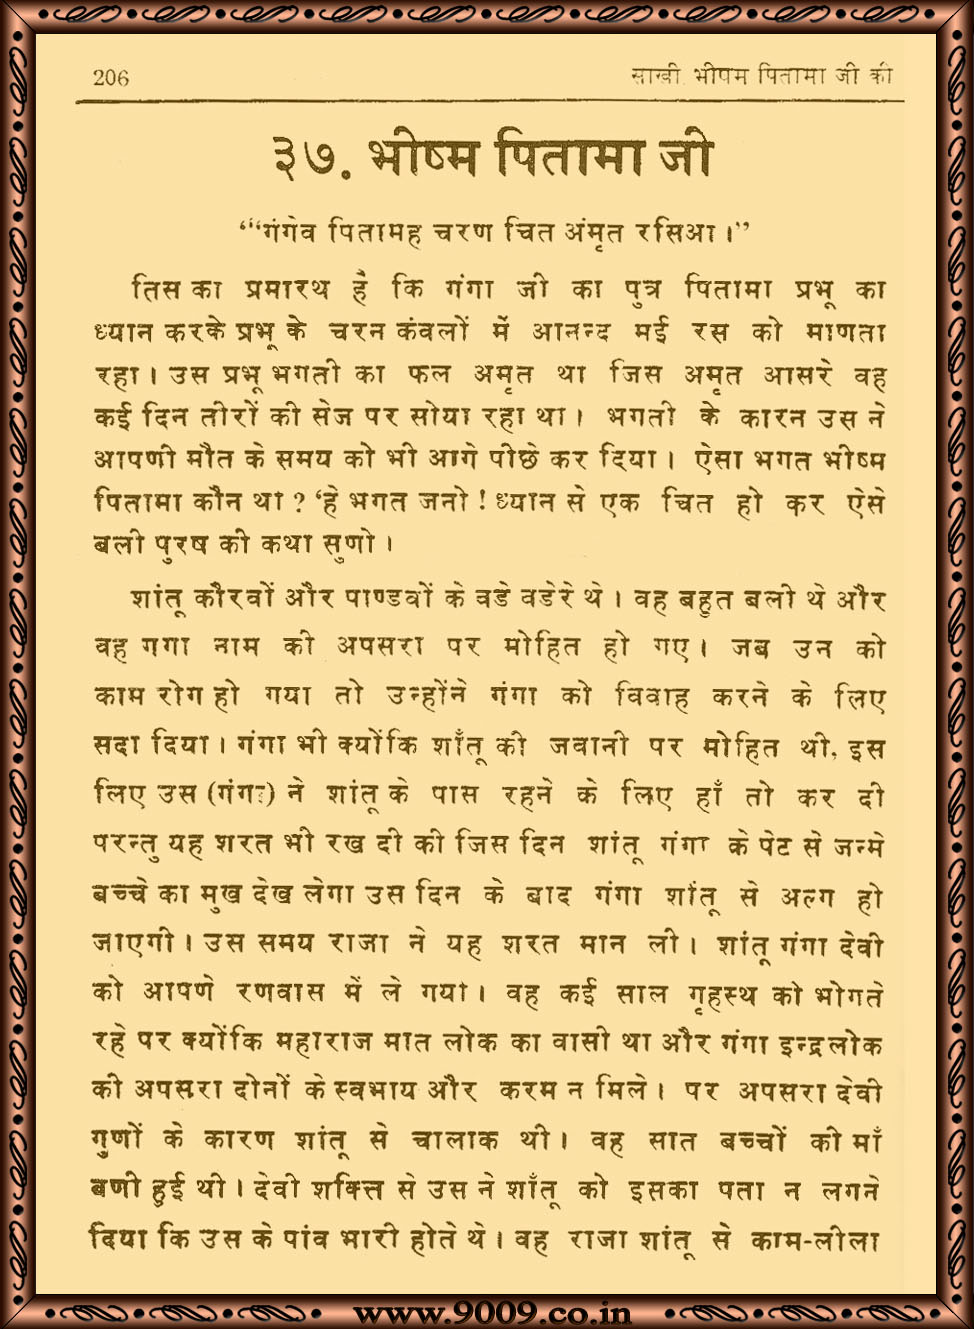 206 साखी भीषम पितामा जी की
३७. भीष्म पितामा जी
“‘‘गंगेव पितामह चरण चित अंमृत रसिआ ।”
तिस का प्रमारथ है कि गंगा जी का पुत्र पितामा प्रभू का
ध्यान करके प्रभू के चरन कंवलों में आनन्द मई रस को माणता
रहा । उस प्रभू भगती का फल अमृत था जिस अमृत आसरे वह
कई दिन तीरों की सेज पर सोया रहा था । भगती के कारन उस ने
आपणी मौत के समय को भी आगे पीछे कर दिया । ऐसा भगत भीष्म
पितामा कौन था ? ‘हे भगत जनो ! ध्यान से एक चित हो कर ऐसे
बली पुरष की कथा सुणो ।
शांतू कौरवों और पाण्डवों के वडे वडेरे थे । वह बहुत बली थे और
वह गगा नाम की अपसरा पर मोहित हो गए । जब उन को
काम रोग हो गया तो उन्होंने गंगा को विवाह करने के लिए
सदा दिया । गंगा भी क्योंकि शाँतू की जवानी पर मोहित थी, इस
लिए उस (गंगा) ने शांतू के पास रहने के लिए हाँ तो कर दी
परन्तु यह शरत भी रख दी की जिस दिन शांतू गंगा के पेट से जन्मे
बच्चे का मुख देख लेगा उस दिन के बाद गंगा शांतू से अल्ग हो
जाएगी । उस समय राजा ने यह शरत मान ली । शांतू गंगा देवी
को आपणे रणवास में ले गया । वह कई साल गृहस्थ को भोगते
रहे पर क्योंकि महाराज मात लोक का वासी था और गंगा इन्द्रलोक
की अपसरा दोनों के स्वभाय और करम न मिले । पर अपसरा देवी
गुणों के कारण शांतू से चालाक थी । वह सात बच्चों की माँ
बणी हुई थी । देवी शक्ति से उस ने शाँतू को इसका पता न लगने
दिया कि उस के पांव भारी होते थे । वह राजा शांतू से काम-लीला
www.9009.co.in